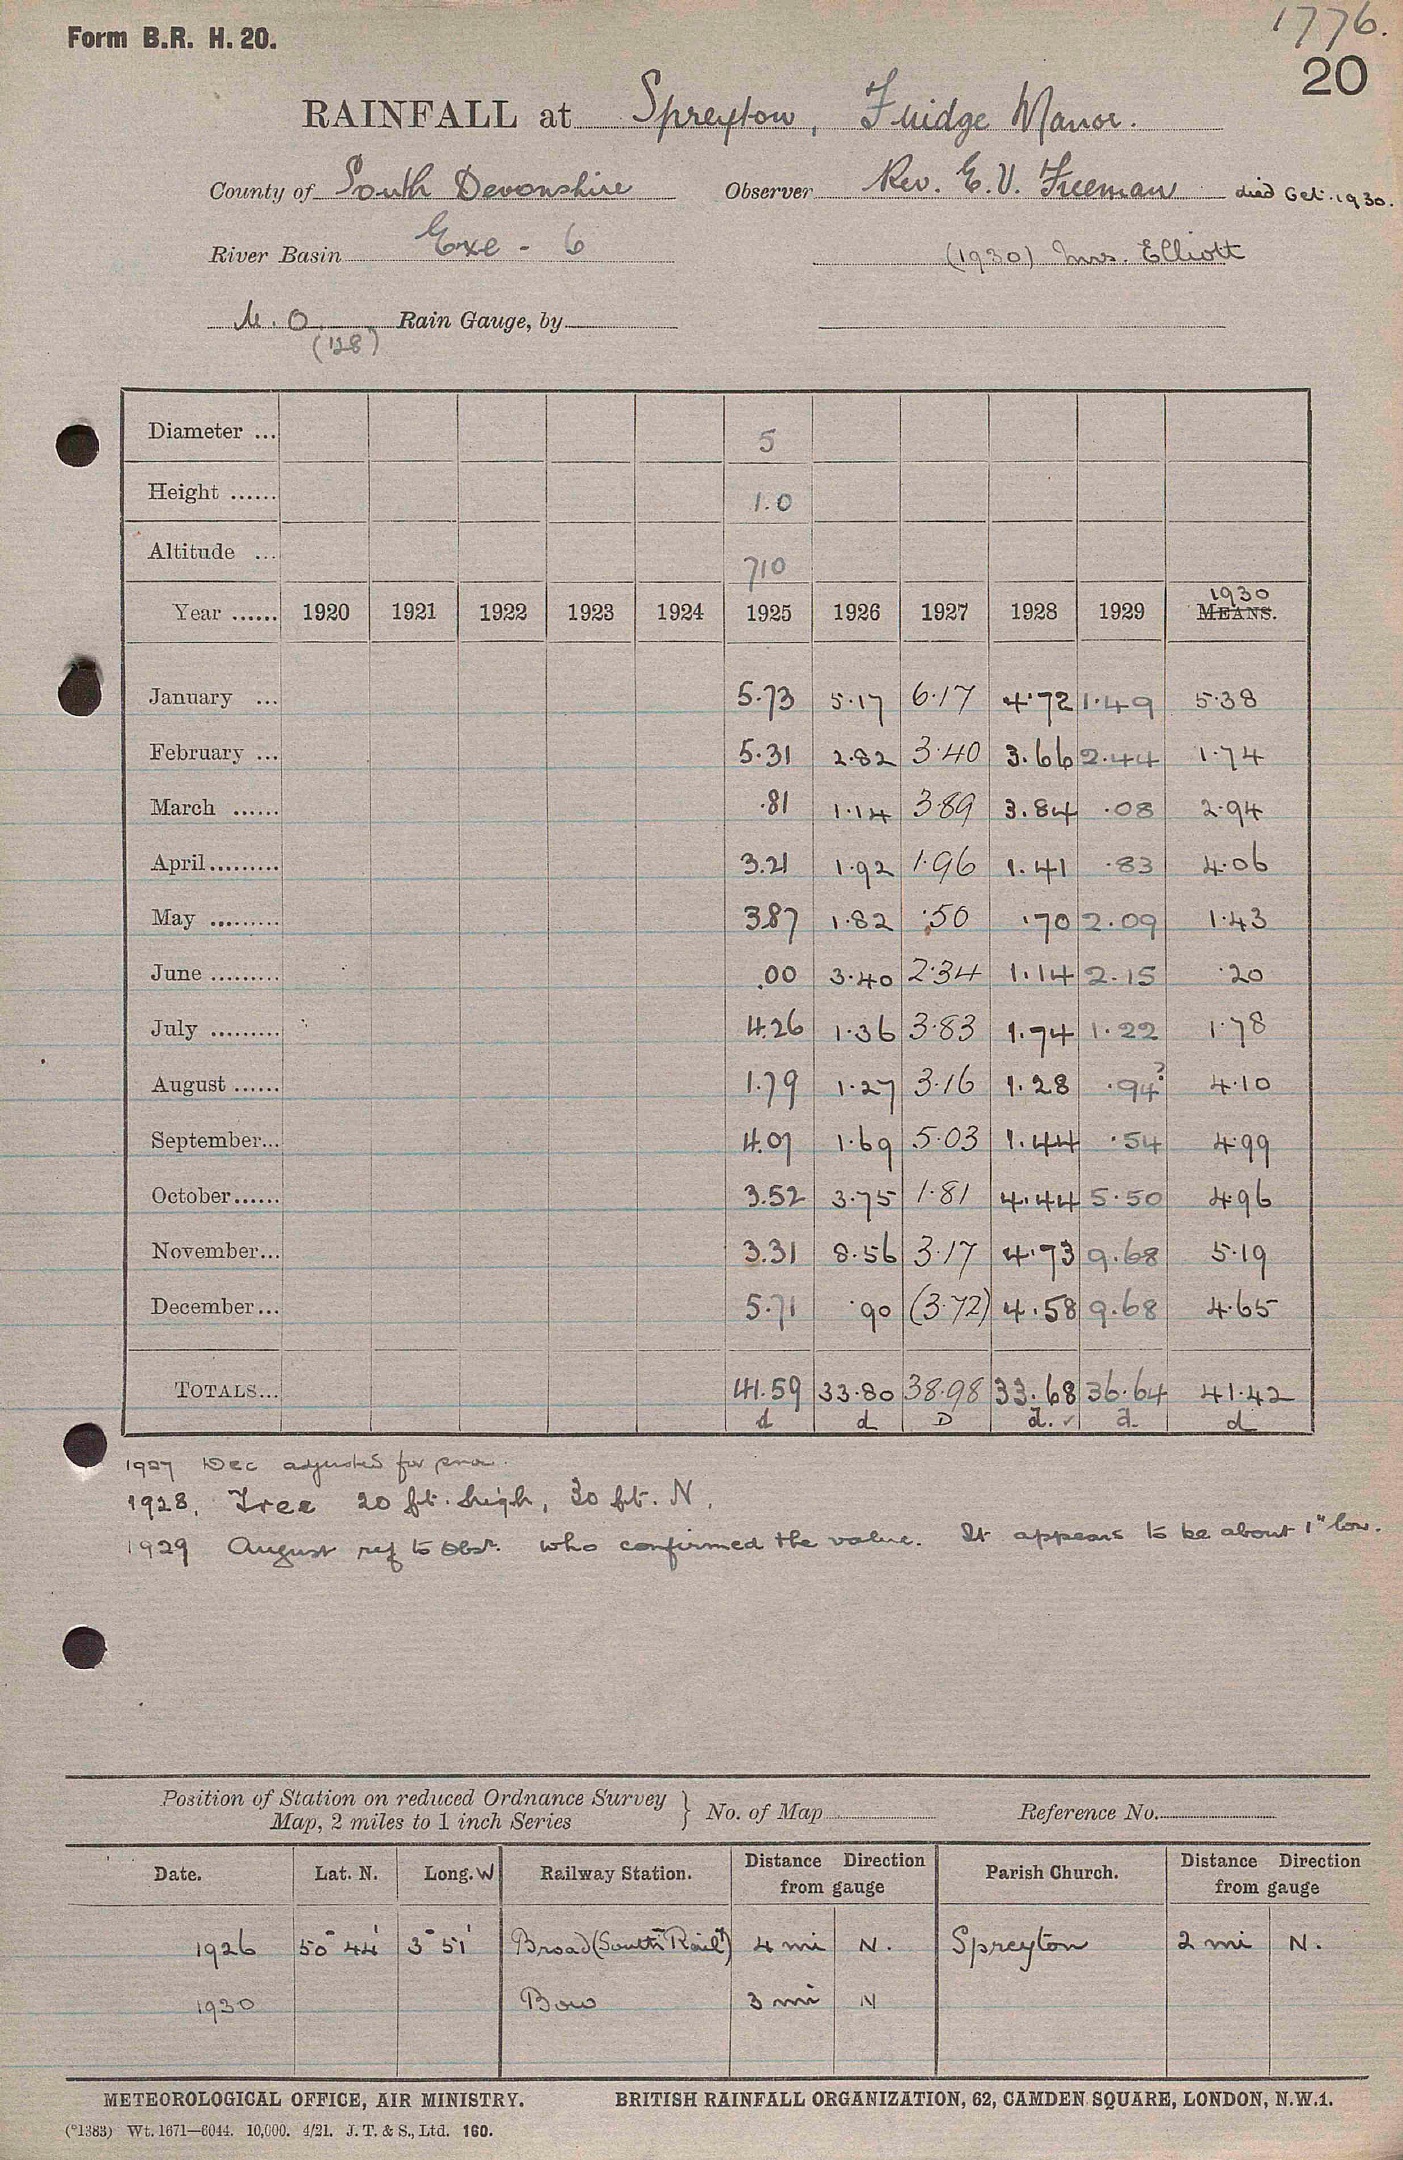 Form B.R. H. 20.
1776.
20
RAINFALL at Spreyton, Fuidge Manor.
County of South Devonshire Observer Rev. E. V. Freeman died Oct. 1930.
River Basin Exe - 6 (1930) Mrs. Elliott
M. O. Rain Gauge, by
(128)
Diameter ... 5
Height ...... 1.0
Altitude ... 710
1930
Year ...... 1920 1921 1922 1923 1924 1925 1926 1927 1928 1929 MEANS.
January ... 5.73 5.17 6.17 4.72 1.49 5.38
February ... 5.31 2.82 3.40 3.66 2.44 1.74
March ...... .81 1.14 3.89 3.84 .08 2.94
April......... 3.21 1.92 1.96 1.41 .83 4.06
May ......... 3.87 1.82 .50 .70 2.09 1.43
June ......... .00 3.40 2.34 1.14 2.15 .20
July ......... 4.26 1.36 3.83 1.74 1.22 1.78
August ...... 1.79 1.27 3.16 1.28 .94? 4.10
September... 4.07 1.69 5.03 1.44 .54 4.99
October...... 3.52 3.75 1.81 4.44 5.50 4.96
November... 3.31 8.56 3.17 4.73 9.68 5.19
December... 5.71 .90 (3.72) 4.58 9.68 4.65
TOTALS... 41.59 33.80 38.98 33.68 36.64 41.42
d d D d. ✓ d d
1927 Dec adjusted for
1928. Tree 20 ft. high, 30 ft. N.
1929 August ref to Obsr. who confirmed the value. It appears to be about 1" low.
Position of Station on reduced Ordnance Survey
Map, 2 miles to 1 inch Series } No. of Map Reference No.
Date. Lat. N. Long. W Railway Station. Distance Direction from gauge Parish Church. Distance Direction from gauge
1926 50° 44' 3° 51' Broad (South Rail) 4 mi N. Spreyton 2 mi N.
1930 Bow 3 mi N
METEOROLOGICAL OFFICE, AIR MINISTRY. BRITISH RAINFALL ORGANIZATION, 62, CAMDEN SQUARE, LONDON, N.W.1.
(*1383) Wt. 1671—6044. 10,000. 4/21. J. T. & S., Ltd. 160.